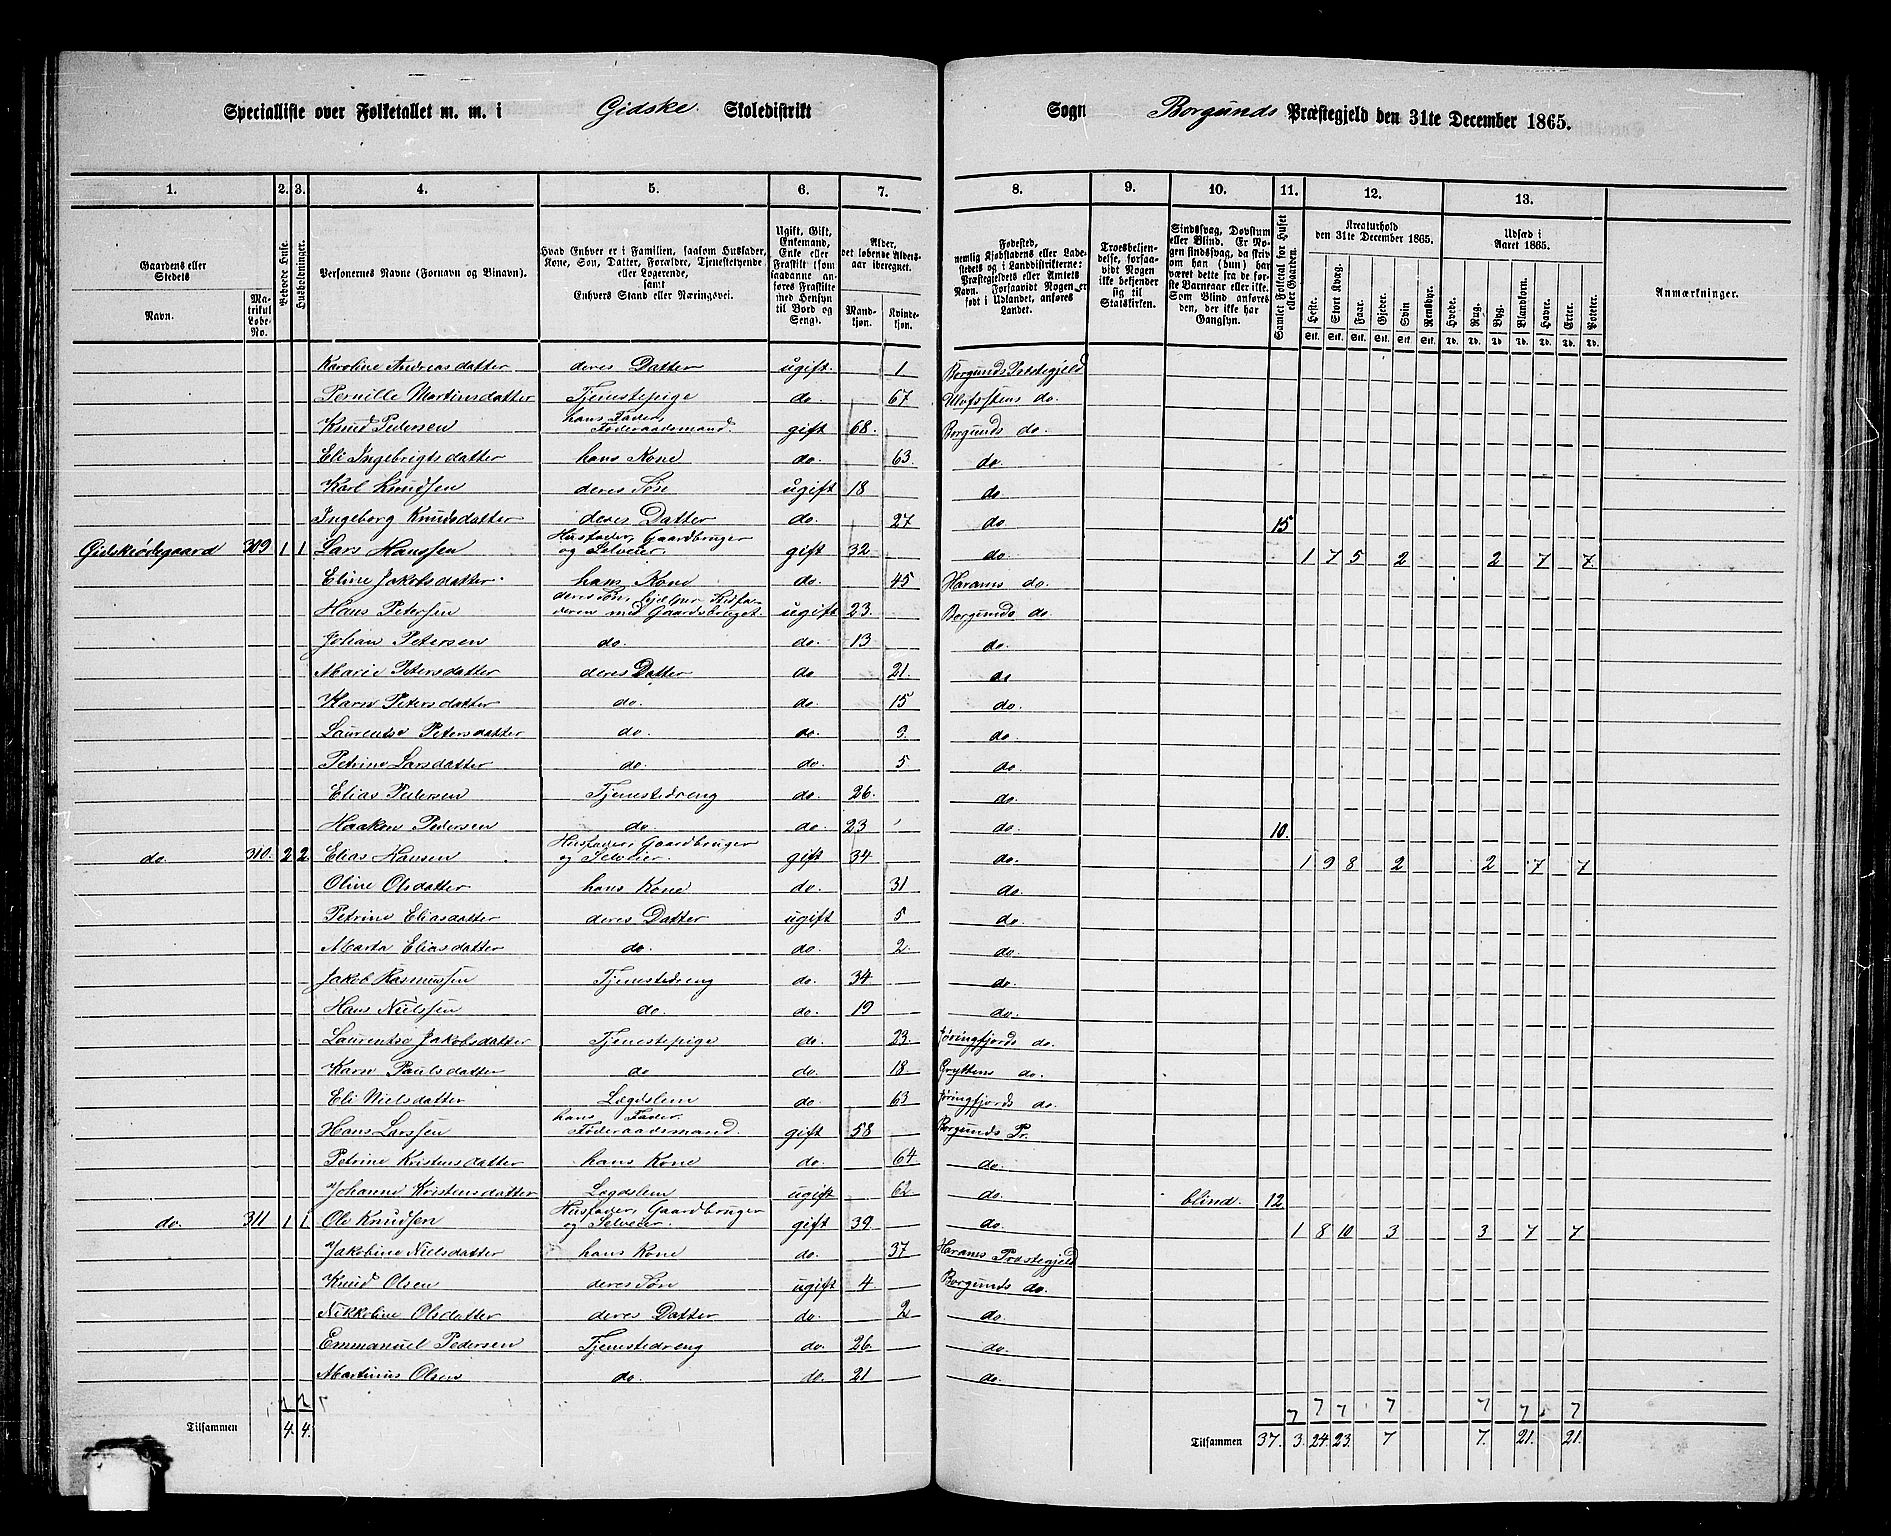 Specialliste over Folketallet m. m. i Gidske Skoledistrikt
Sogn Borgunds Præstegjeld den 31te December 1865.
1. 2. 3. 4. 5. 6. 7. 8. 9. 10. 11. 12. 13.
Gaardens eller Stedets
Navn.
Matrikul Løbe-No.
Beboede Huse.
Husholdninger.
Personernes Navne (Fornavn og Binavn).
Hvad Enhver er i Familien, saasom Husfader, Kone, Søn, Datter, Forældre, Tjenestetyende eller Logerende, samt Enhvers Stand eller Næringsvei.
Ugift, Gift, Enkemand, Enke eller Fraskilt (som saadanne anføres Fraskilte med Hensyn til Bord og Seng).
Alder, det løbende Aldersaar iberegnet.
Mandkjøn. Kvindekjøn.
Fødested, nemlig Kjøbstadens eller Ladestedets og i Landdistrikterne: Præstegjeldets eller Amtets Navn. Forsaavidt Nogen er født i Udlandet, anføres Landet.
Troesbekjendelse, forsaavidt Nogen ikke bekjender sig til Statskirken.
Sindssvag, Døvstum eller Blind. Er Nogen sindssvag, da skriv om han (hun) har været dette fra de første Barneaar eller ikke. Som Blind anføres den, der ikke har Gangsyn.
Samlet Folketal for Huset eller Gaarden.
Kreaturhold den 31te December 1865.
Heste. Stort Kvæg. Faar. Gjeder. Svin Rensdyr.
Udsæd i Aaret 1865.
Hvede. Rug. Byg. Blandkorn. Havre. Erter. Poteter.
Anmærkninger.
Karoline Andreasdatter deres Datter ugift. 1 Borgunds Præstegjeld
Pernille Martinusdatter Tjenestepige do. 67 Ulfstens do.
Knud Pedersen hans Fader, Føderaadsmand. gift 68. Borgunds do.
Eli Ingebrigtsdatter hans Kone do. 63. do.
Karl Knudsen deres Søn ugift 18 do.
Ingeborg Knudsdatter deres Datter do. 27 do 15
Gidskeødegaard 309 1 1 Lars Hanssen Husfader, Gaardbruger og Selveier. gift 32 do. 1 7 5 2 2 7 7.
Eline Jakobsdatter hans Kone do. 45 Harams do.
Hans Petersen deres Søn, hjælper Husfaderen med Gaardsbruget. ugift 23. Borgunds do.
Johan Petersen do. do. 13 do.
Marie Petersdatter deres Datter do 21. do
Karen Petersdatter do. do. 15 do.
Laurentse Petersdatter do. do. 9. do.
Petrine Larsdatter do. do. 5 do.
Elias Pedersen Tjenestedreng do. 26. do.
Haaken Pedersen do. do. 23 do. 10.
do. 310. 2 2 Elias Hansen Husfader, Gaardbruger og Selveier. gift 34 do. 1 9 8 2 2 7 7
Oline Olsdatter hans Kone do. 31 do.
Petrine Eliasdatter deres Datter ugift 5 do.
Marta Eliasdatter do. do. 2. do.
Jakob Rasmussen Tjenestedreng do. 34. do.
Hans Nielssen do do. 19 do.
Laurentse Jakobsdatter Tjenestepige do. 23. Jøringfjords do.
Karen Paulsdatter do do. 18. Gryttens do.
Eli Nielsdatter Lægdslem do. 63 Jøringfjords do.
Hans Larssen hans Fader. Føderaadsmand. gift 58 Borgunds Pr.
Petrine Kristensdatter hans Kone do. 64 do.
Johanne Kristensdatter Lægdslem ugift 62 do. blind. 12
do. 311 1 1 Ole Knudsen Husfader, Gaardbruger og Selveier. gift 39. do. 1 8 10 3 3 7 7
Jakobine Nielsdatter hans Kone do. 37 Harams Præstegjeld
Knud Olsen deres Søn ugift 4 Borgunds do.
Nikkoline Olsdatter deres Datter do. 2 do.
Emmanuel Pedersen Tjenestedreng do. 26. do.
Martinus Olsen do. do. 21 do.
Tilsammen 4. 4. Tilsammen 37. 3. 24. 23. 7 7. 21. 21.